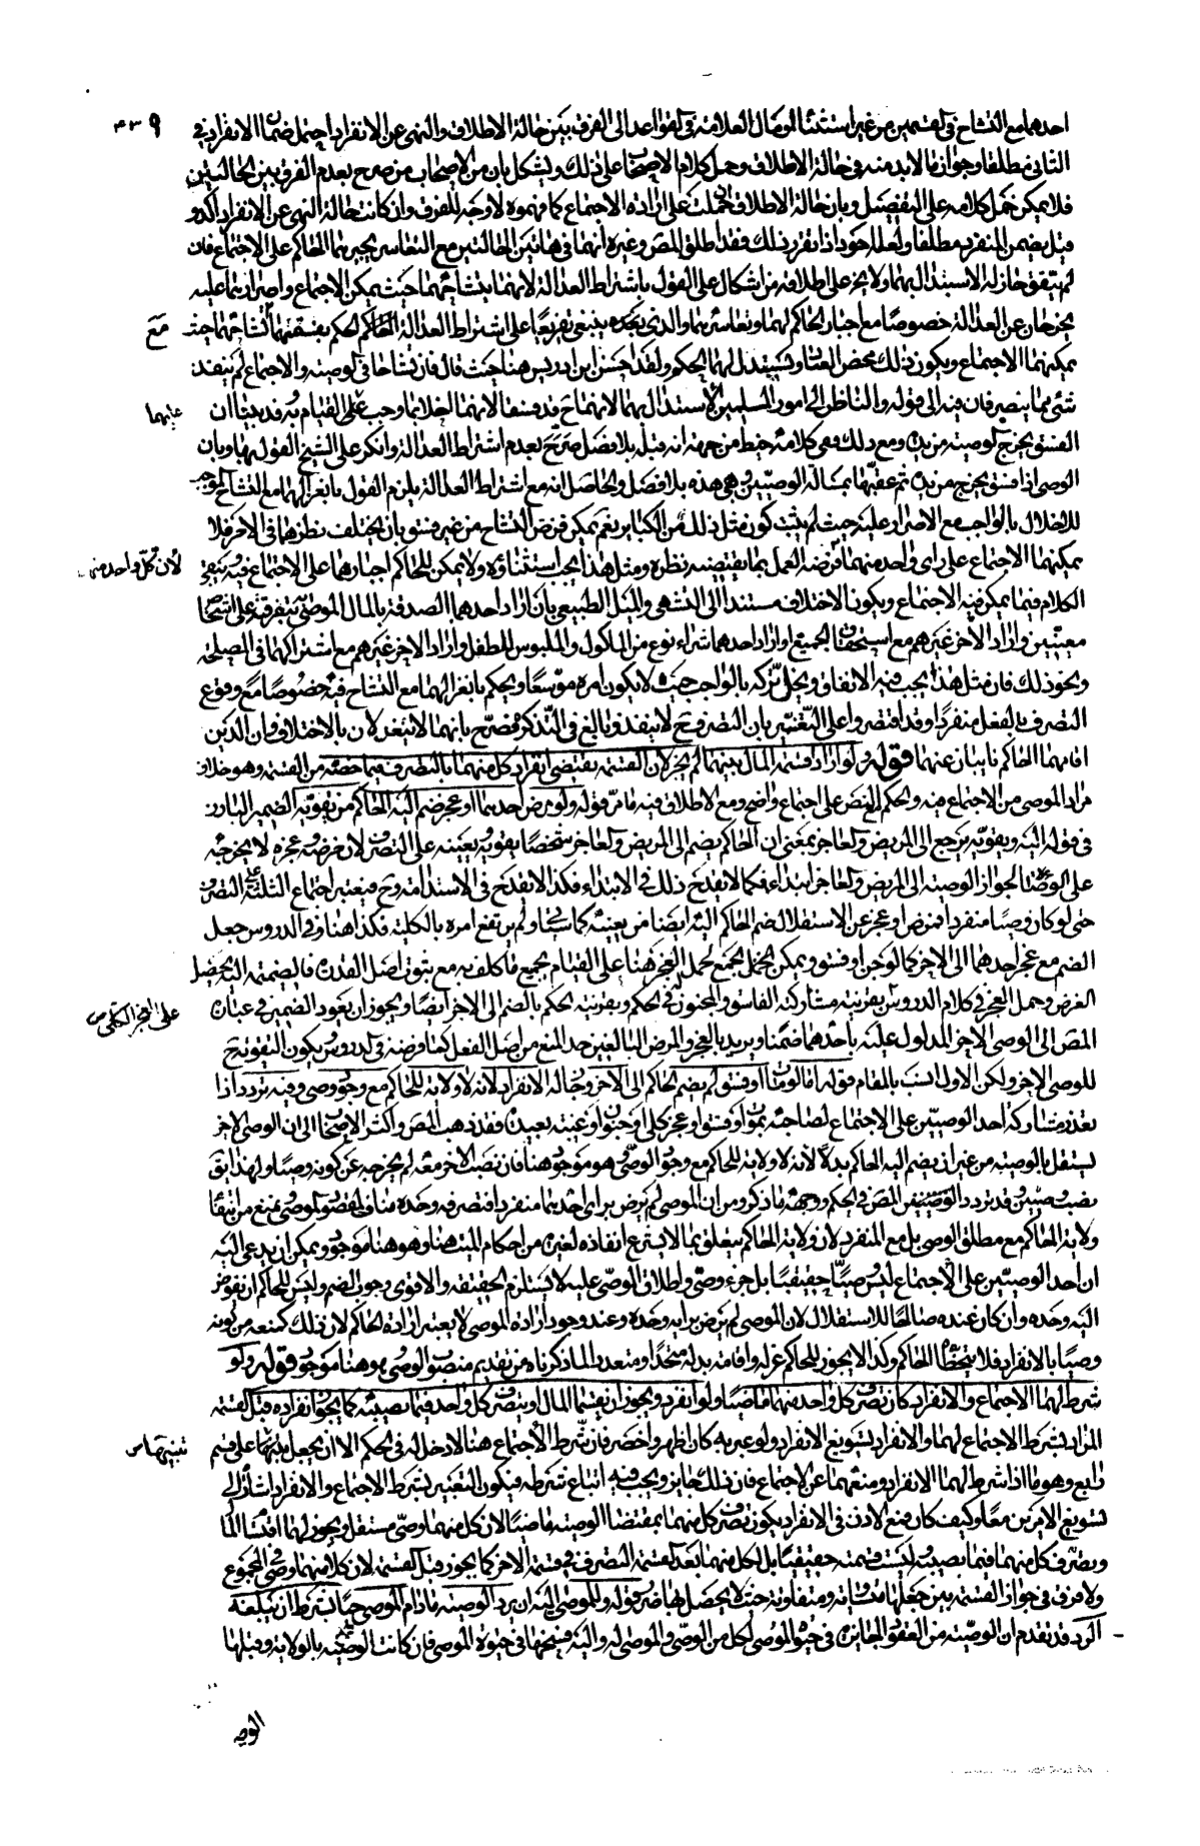 احدهما مع التشاح في القسمين من غير استثناء وقال العلامة في القواعد الى الفرق بين حالة الاطلاق والنهى عن الانفراد احتمل ضمان الانفراد في
٤٣٩
الثاني مطلقا وجواز ما لا بد منه في حالة الاطلاق وحمل كلام الاصحاب على ذلك ويشكل بان من الاصحاب من صرح بعدم الفرق بين الحالتين
فلا يمكن حمل كلامه على التفصيل وبان حالة الاطلاق ان حملت على ارادة الاجتماع كما فهموه لا وجه للفرق وان كانت حالة النهى عن الانفراد اكد و
قيل يضمن المنفرد مطلقا ولعله اجود اذا تقرر ذلك فقد اطلق المص وغيره انهما في هاتين الحالتين مع التعاسر يجبرهما الحاكم على الاجتماع فان
لم يتفق جاز له الاستبدال بهما ولا يخ على اطلاقه من اشكال على القول باشتراط العدالة لانهما بتشاحهما حيث يمكن الاجتماع واصرارهما عليه
يخرجان عن العدالة خصوصا مع اجبار الحاكم لهما وتعاسرهما والذي ينبغي تفريعا على اشتراط العدالة الحكم بفسقهما بتشاحهما حيث
مع
يمكنهما الاجتماع ويكون ذلك محض العناد ويستبدل بهما الحكم ولقد احسن ابن ادريس هنا حيث قال فان تشاحا في الوصية والاجتماع لم ينفذ
شئ مما يتصرفان فيه الى قوله وللناظر في امور المسلمين الاستبدال بهما لانهما ح قد فسقا لانهما اخلا بما وجب عليهما القيام به وقد بينا ان
عليهما
الفسق يخرج الوصية من يده ومع ذلك ففي كلامه خبط من جهة انه قبل بلا فصل صرح بعدم اشتراط العدالة وانكر على الشيخ القول بها وبان
الوصي اذا فسق يخرج من يده ثم عقبها بمسألة الوصيين وهي هذه بلا فصل والحاصل انه مع اشتراط العدالة يلزم القول بانعزالهما مع التشاح الموجب
للاخلال بالواجب مع الاصرار عليه حيث لم يثبت كون مثل ذلك من الكبائر نعم يمكن فرض التشاح من غير فسق بان يختلف نظرهما في الامر فلا
يمكنهما الاجتماع على راى واحد منهما فرضه العمل بما يقتضيه نظره ومثل هذا يجب استثناؤه ولا يمكن للحاكم اجبارهما على الاجتماع فيه ويبقى
لان كل واحد منهما
الكلام فيما يمكن فيه الاجتماع ويكون الاختلاف مستندا الى التشهى والميل الطبيعي بان اراد احدهما الصدقة بالمال الموصى بتفرقته على اشخاص
معينين واراد الاخر غيرهم مع استحقاق الجميع او اراد احدهما شراء نوع من الماكول والملبوس للطفل واراد الاخر غيرهم مع اشتراكهما في المصلحة
ونحو ذلك فان مثل هذا يجب فيه الاتفاق ويخل تركه بالواجب حيث لا يكون امره موسعا ويحكم بانعزالهما مع التشاح فيه خصوصا مع وقوع
التصرف بالفعل منفردا وقد اقتصروا على التعبير بان التصرف ح لا ينفذ وبالغ في التذكرة فصرح بانهما لا ينعزلان بالاختلاف وان الذين
اقامهما الحاكم نايبان عنهما قوله ولو ارادا قسمة المال بينهما لم يجز لان القسمة تقتضى انفراد كل منهما بالتصرف فيما خصته من القسمة وهو خلاف
مراد الموصى من الاجتماع فيه والحكم مع النص على اجتماع واضح ومع الاطلاق فيه ما مر قوله ولو مرض احدهما او عجز ضم اليه الحاكم من يقويه الضمير البارز
في قوله اليه ويقويه يرجع الى المريض والعاجز بمعنى ان الحاكم يضم الى المريض والعاجز شخصا يقويه ويعينه على التصرف لان مرضه وعجزه لا يخرجه
على الوصاية لجواز الوصية الى المريض والعاجز ابتداء فكما لا يقدح ذلك في الابتداء فكذا لا تقدح في الاستدامة وح فيعتبر اجتماع الثلثة على التصرف
حتى لو كان وصيا منفردا فمرض او عجز عن الاستقلال ضم الحاكم اليه ايضا من يعينه كما سياتي ولم يرتفع امره بالكلية فكذا هنا وفي الدروس جعل
الضم مع عجز احدهما الى الاخر كما لو جن او فسق ويمكن الجمع بحمل العجز هنا على القيام بجميع ما كلف به مع ثبوت اصل القدرة فالضميمة اليه تحصل
الغرض وحمل العجز في كلام الدروس بقرينة مشاركة الفاسق والمجنون في الحكم وبقرينة الحكم بالضم الى الاخر ايضا ويجوز ان يعود الضمير في عبارة
على العجز الكلى ص
المص الى الوصي الاخر المدلول عليه باحدهما ضمنا ويريد بالعجز والمرض البالغين حد المنع من اصل الفعل كما فرضه في الدروس يكون التقوية ح
للوصي الاخر ولكن الاول انسب بالمقام قوله اما لو مات او فسق لم يضم الحاكم الى الاخر وجاز له الانفراد لانه لا ولاية للحاكم مع وجود وصي وفيه تردد اذا
تعذر مشاركة احد الوصيين على الاجتماع لصاحبه بموت او فسق او عجز كلي او جنون او غيبة بعيدة فقد ذهب المص واكثر الاصحاب الى ان الوصي الاخر
يستقل بالوصية من غير ان يضم اليه الحاكم بدلا لانه لا ولاية للحاكم مع وجود الوصي وهو موجود هنا فان نصب الاخر معه لم يخرجه عن كونه وصيا ولهذا يق
نصب وصيين وقد تردد المص في الحكم ووجهه ما ذكر ومن ان الموصى لم يرض براى احدهما منفردا فتصرفه وحده مناف لمقصود الموصى ونمنع من انتفاء
ولاية الحاكم مع مطلق الوصي بل مع المنفرد لان ولاية الحاكم يتعلق بما لا يشرع انفاذه لغيره من احكام الميت هنا وهو هنا موجود ويمكن ان يدعى اليه
ان احد الوصيين على الاجتماع ليس وصيا حقيقيا بل جزء وصي واطلاق الوصي عليه لا يستلزم الحقيقة والاقوى وجوب الضم وليس للحاكم ان يفوض
اليه وحده وان كان عنده صالحا للاستقلال لان الموصى لم يرض برايه وحده وعند وجود ارادة الموصى لا يعتبر ارادة الحاكم لان ذلك كمنعه من كونه
وصيا بالانفراد فلا يتخطاه الحاكم وكذا لا يجوز للحاكم عزله واقامة بدله متحدا ومتعددا لما ذكرناه من تقديم منصوب الموصى وهو هنا موجود قوله ولو
شرط لهما الاجتماع والانفراد كان تصرف كل واحد منهما ماضيا ولو انفرد ويجوز ان يقتسما المال ويتصرف كل واحد فيما يصيبه كما يجوز انفراده قبل القسمة
المراد بشرط الاجتماع لهما والانفراد تسويغ الانفراد ولو عبر به كان اظهر واخصر فان شرط الاجتماع هنا لا دخل له في الحكم الا ان يجعل تنبيها على قسم
تنبيها ص
رابع وهو ما اذا شرط لهما الانفراد ومنعهما عن الاجتماع فان ذلك جايز ويجب فيه اتباع شرطه فيكون التعبير بشرط الاجتماع والانفراد اشارة الى
تسويغ الامرين معا وكيف كان فمع الاذن في الانفراد يكون تصرف كل منهما بمقتضى الوصية ماضيا لان كل منهما وصي مستقل ويجوز لهما اقتسام المال
ويتصرف كل منهما فيما يصيبه وليست قسمته حقيقية بل لكل منهما بعد القسمة التصرف في قسمة الاخر كما يجوز قبل القسمة لان كلا منهما وصي في المجموع
ولا فرق في جواز القسمة بين جعلها متساوية ومتفاوتة حيث لا يحصل بها ضرر قوله وللموصى اليه ان يرد الوصية ما دام الموصى حيا بشرط ان يبلغه
الرد قد تقدم ان الوصية من العقود الجايزة في حيوة الموصى لكل من الوصي والموصى له واليه فسخها في حيوة الموصى فان كانت الوصية بالولاية وقبلها
الوصى